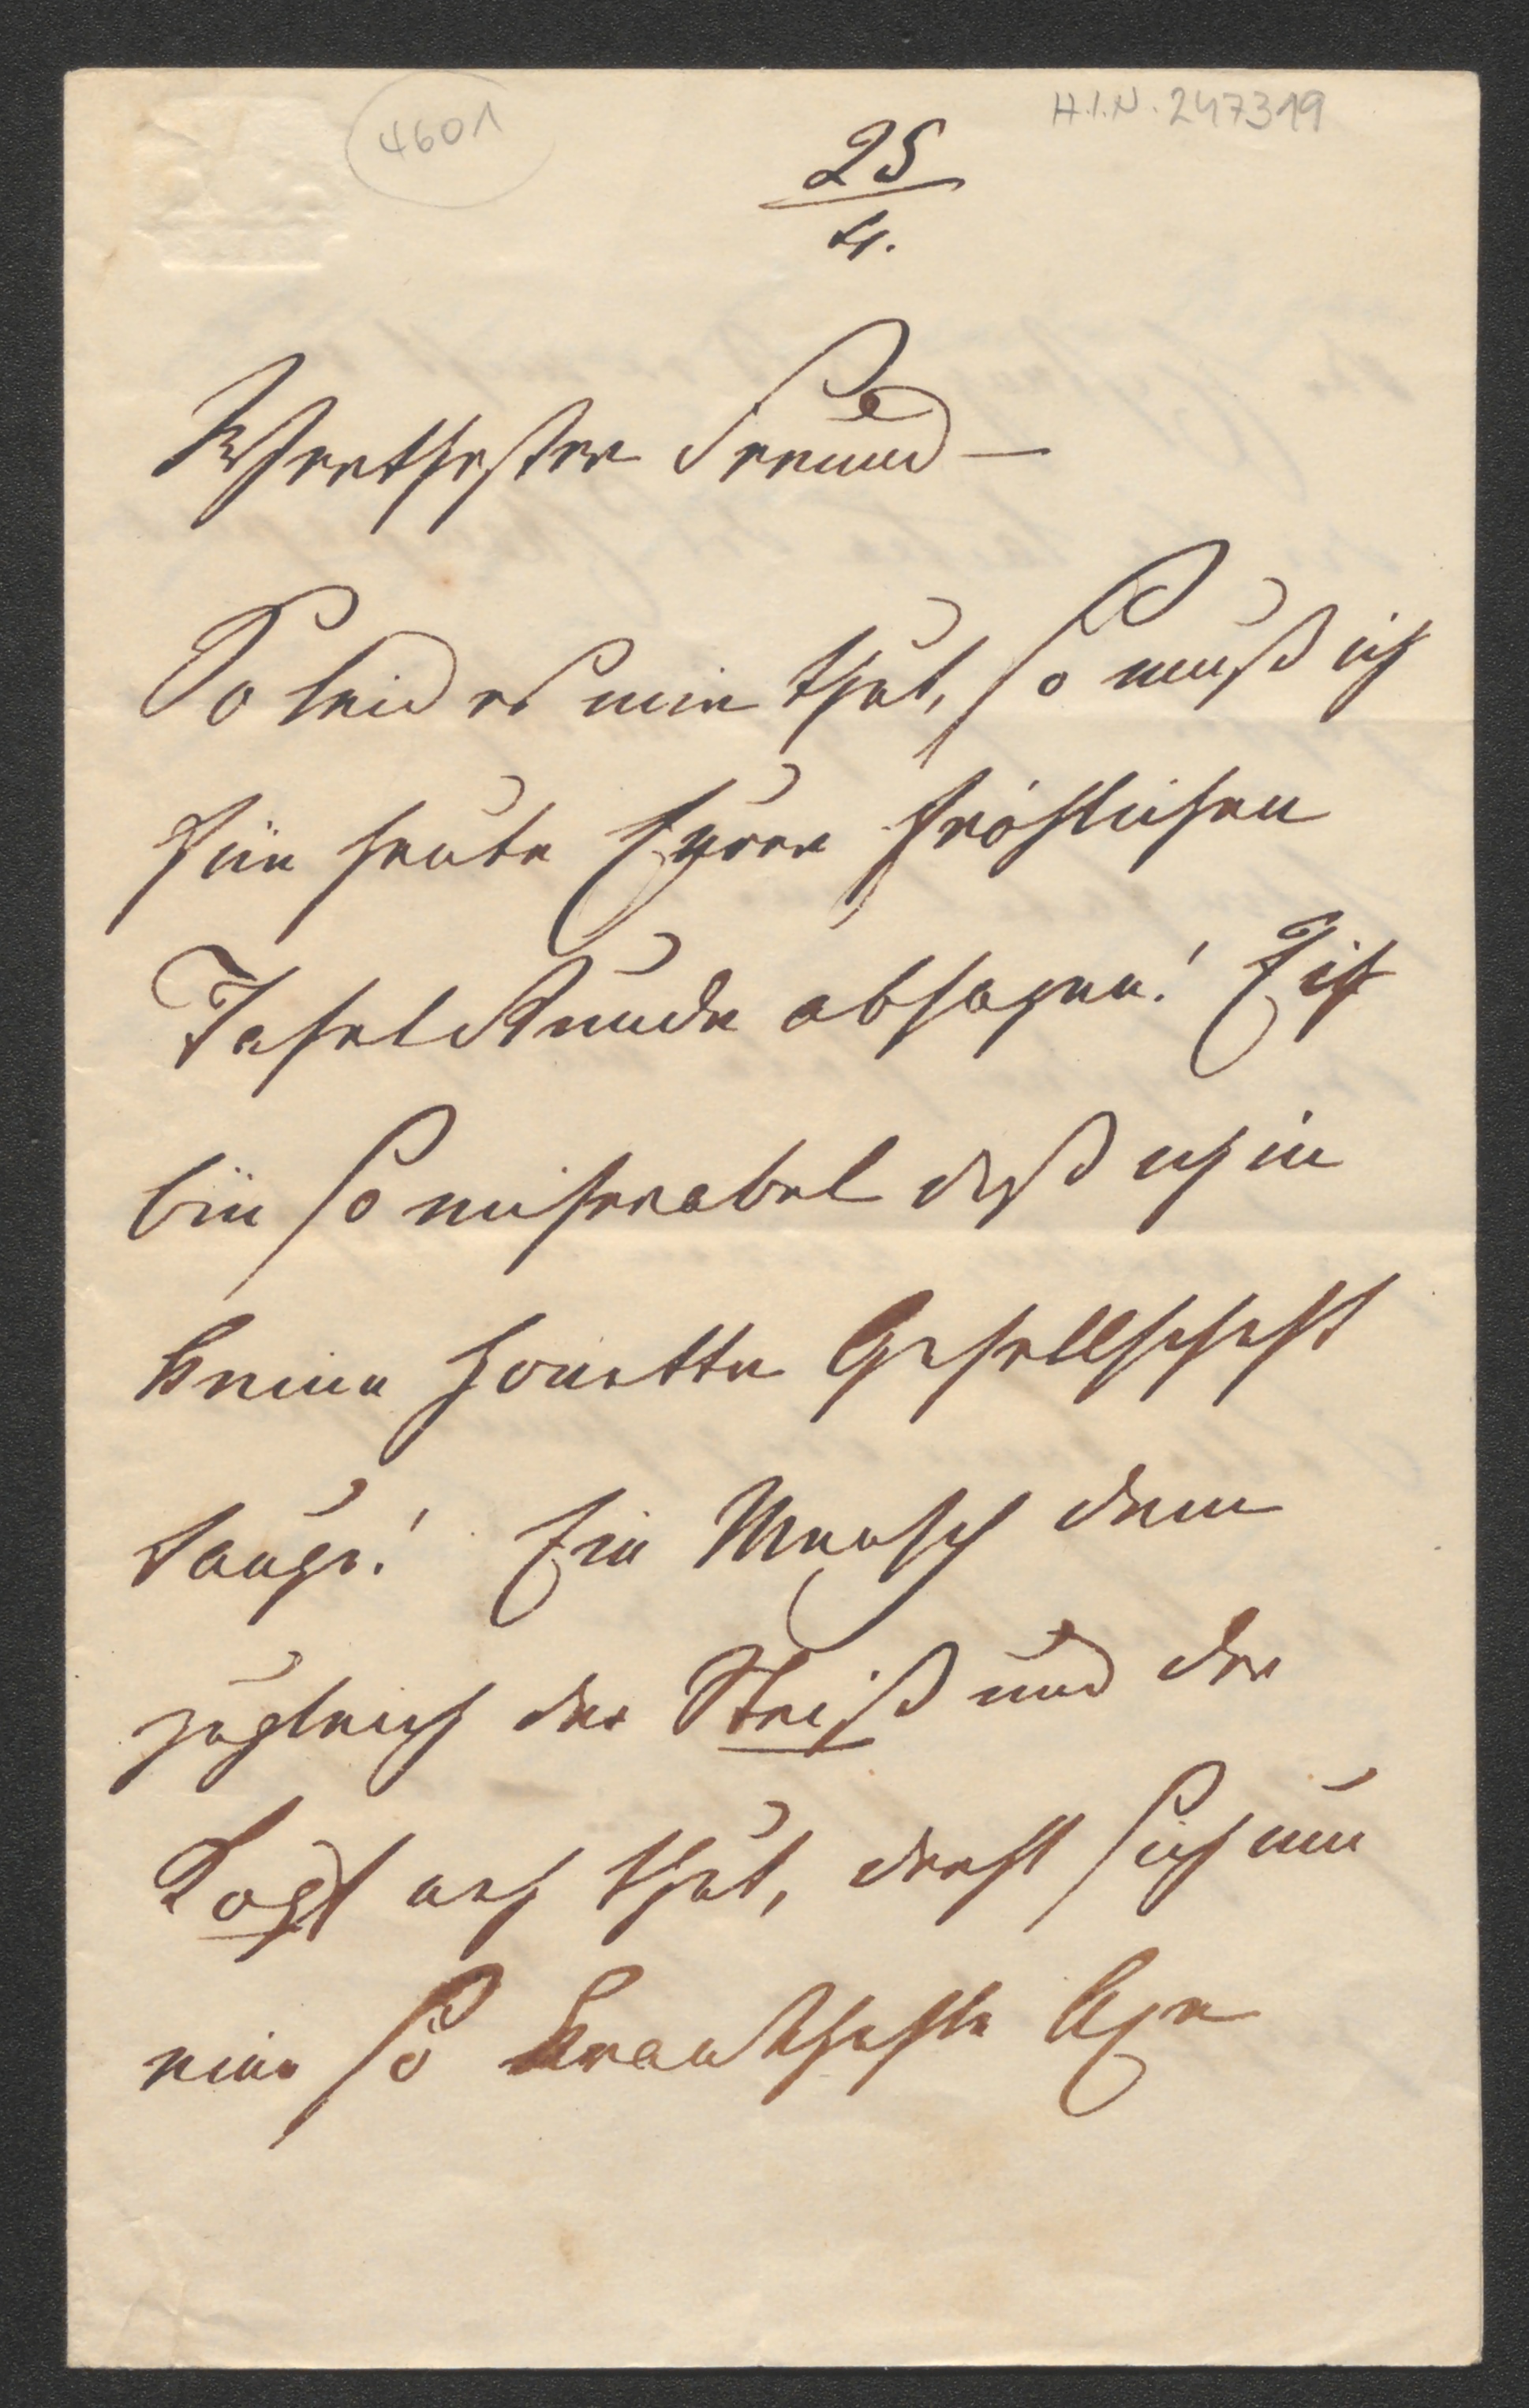 4601
H.I.N. 247319
25
4.
Wherthester Freund —
So leid es mir thut, so muß ich
für heute Eurer fröhlichen
Tafelrunde absagen! Ich
bin so miserabel daß ich in
keine honette Gesellschaft
tauge! Ein Mensch dem
zugleich der Steiß und der
Kopf weh thut, dreht sich um
eine so krankhafte Axe